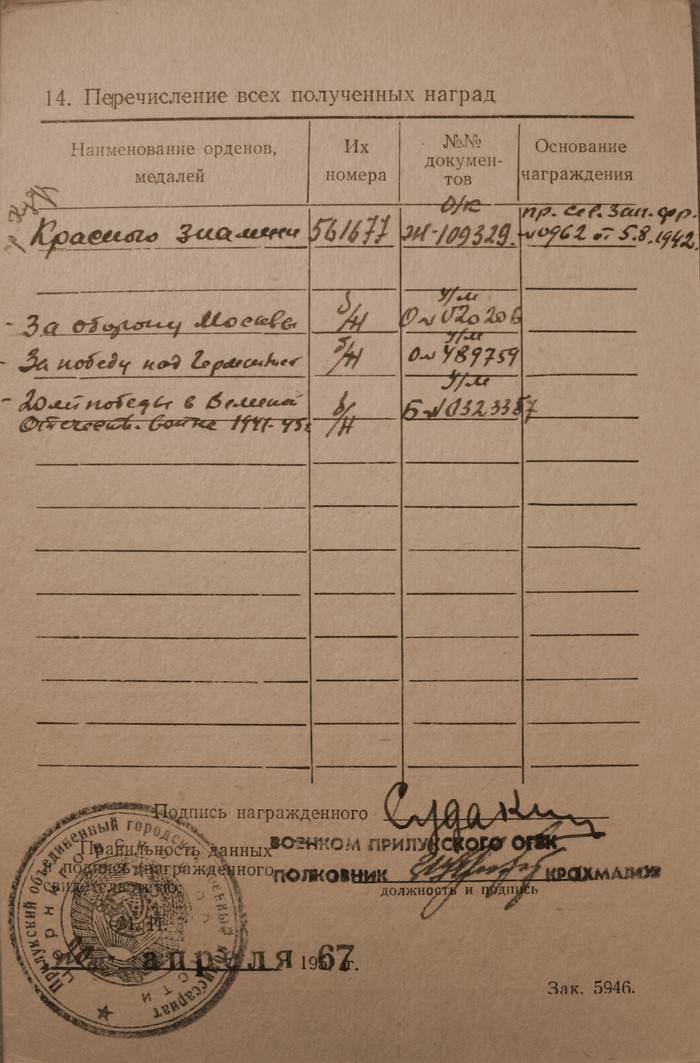 14. Перечисление всех полученных наград
Наименование орденов, медалей
Их номера
№№ документов
Основание награждения
Красного знамени 561677 о/к Ж-109329. пр. сев. зап. фр. №0962 от 5.8.1942.
- За оборону Москвы б/н у/м О№020206
- За победу над Германией б/н у/м О№489759
- 20 лет победы в Великой б/н у/м Б-№0323357
Отечеств. войне 1941-45г
Подпись награжденного Судакин
Правильность данных
и подписи награжденного
свидетельствую:
ВОЕНКОМ ПРИЛУКСКОГО ОГВК
ПОЛКОВНИК КРОХМАЛЮК
должность и подпись
М. П.
апреля 1967 г.
Прилукский объединенный городской военный комиссариат
Зак. 5946.